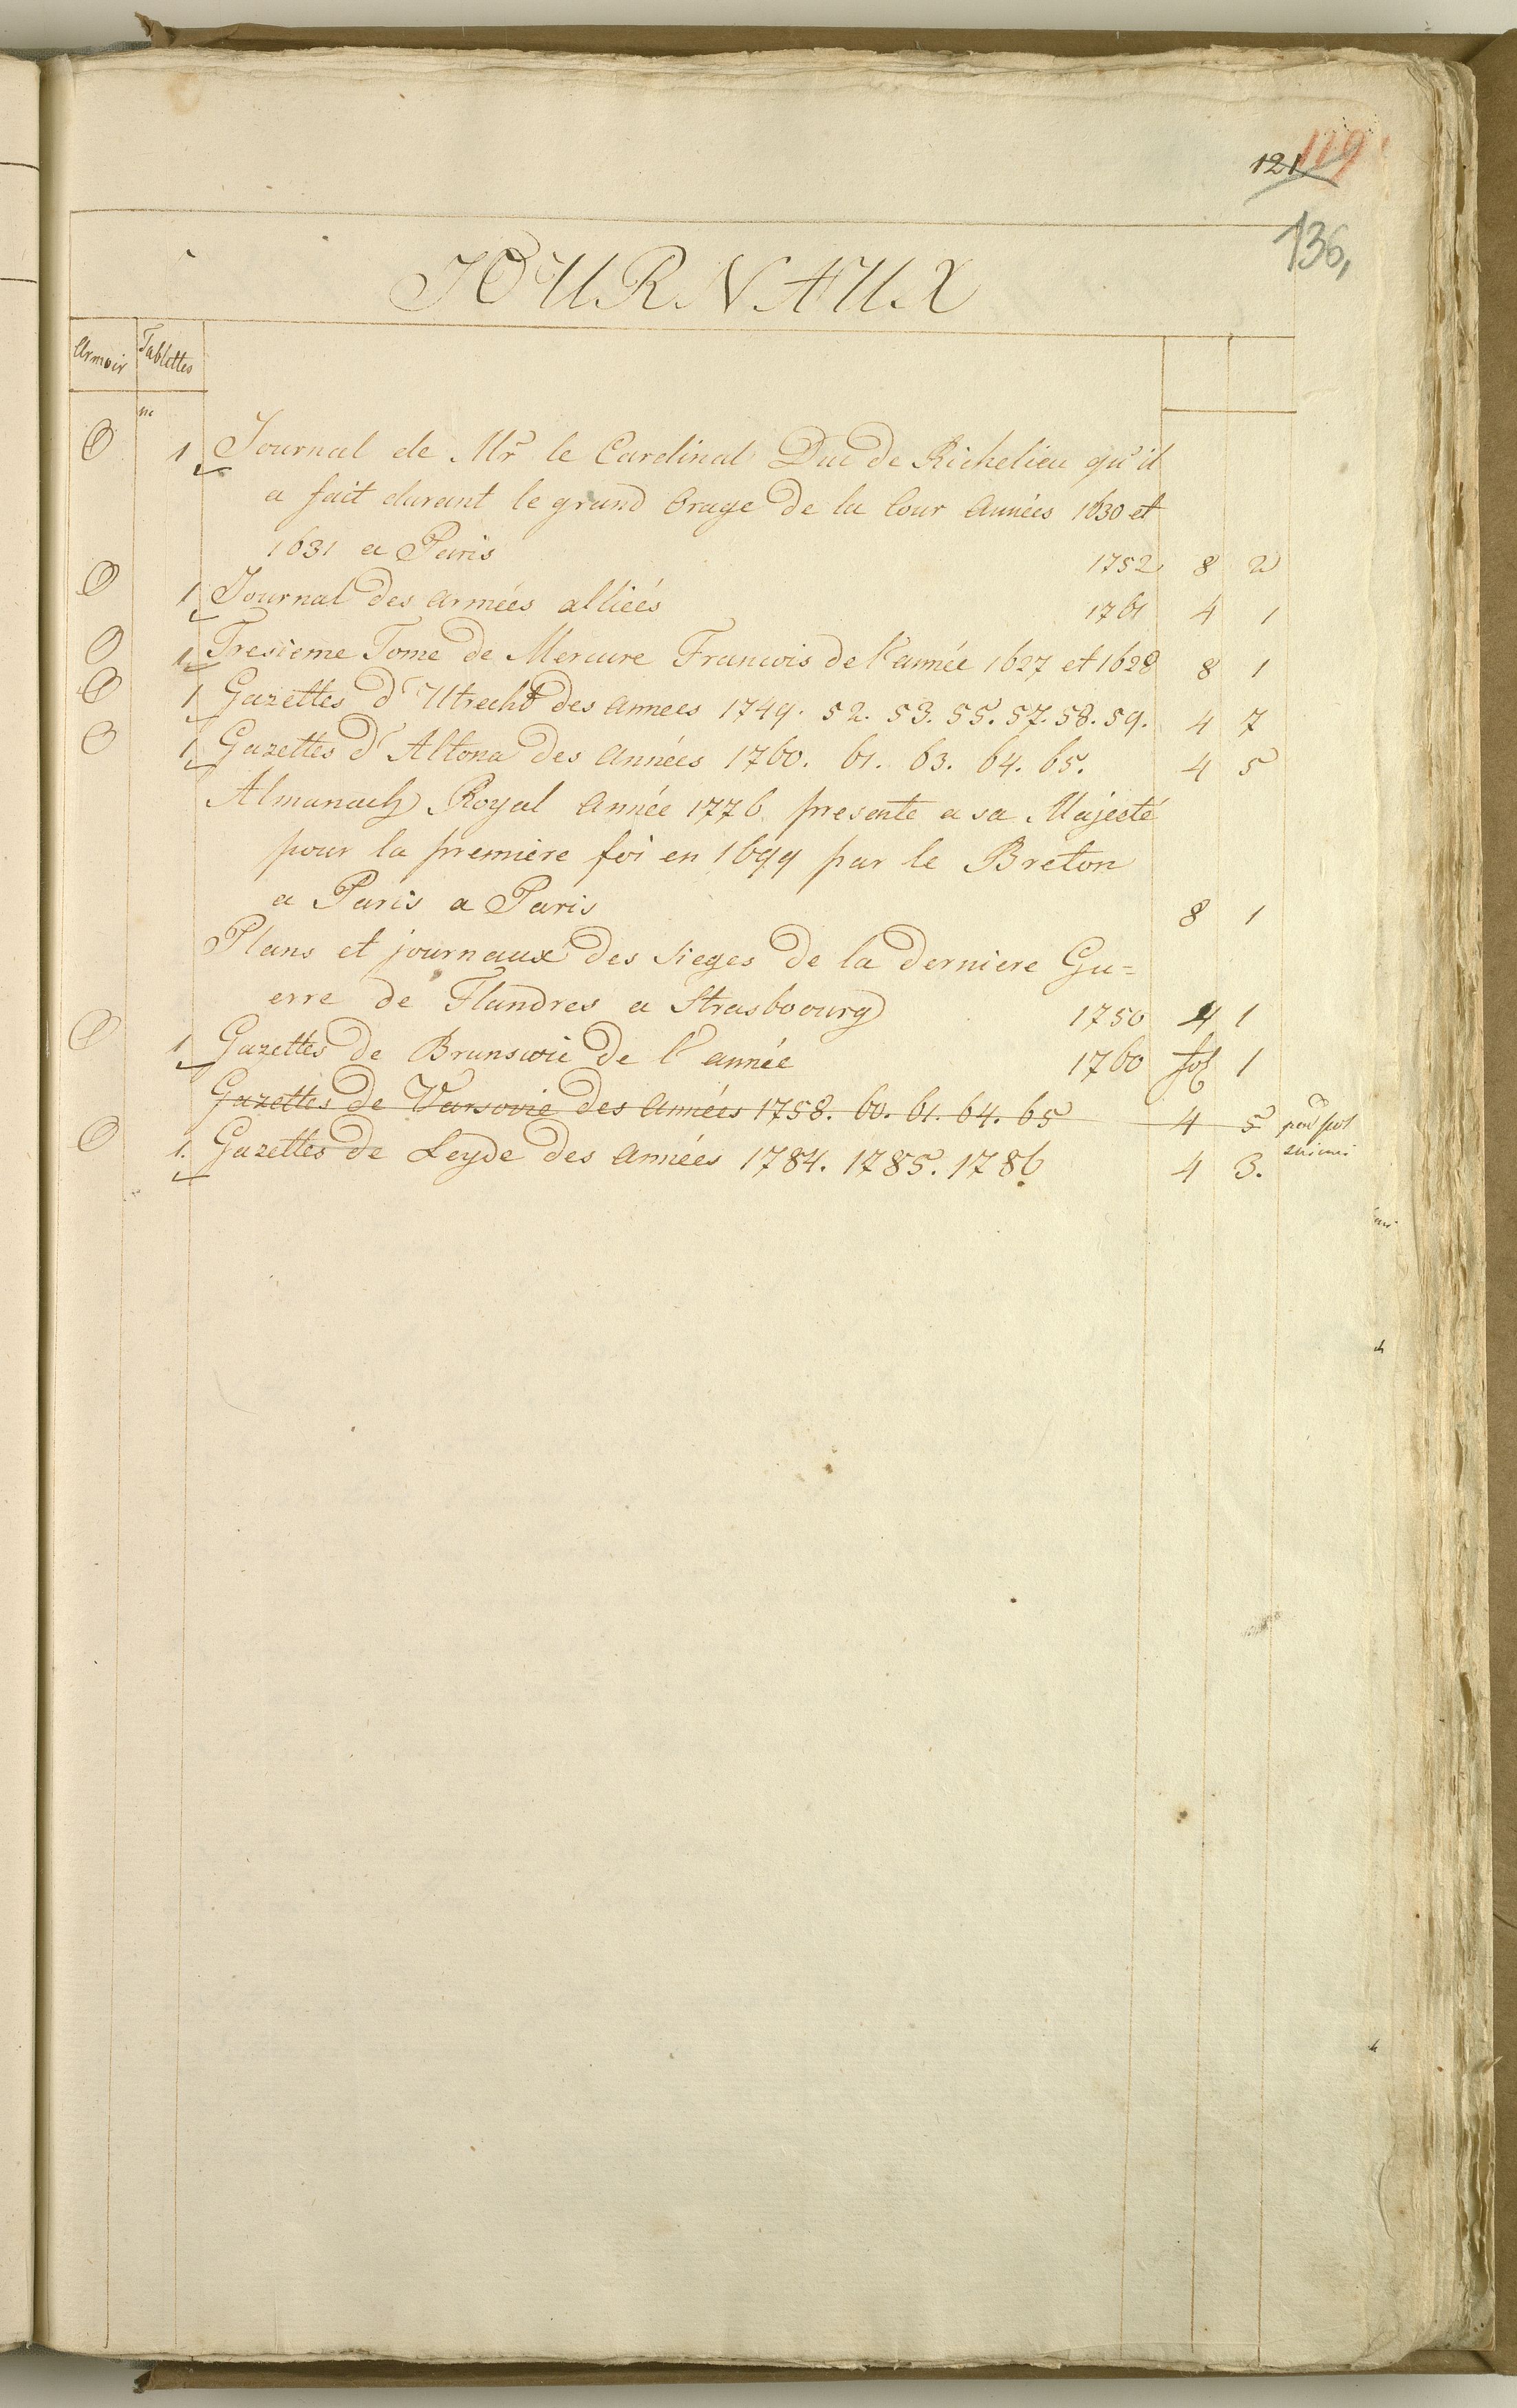 121 119
136,
JOURNAUX
Armoir Tablettes
O 1 Journal de Mr le Cardinal Duc de Richelieu qu'il
a fait durant le grand Orage de la Cour Années 1630 et
1631 a Paris 1752 8 2
O 1 Journal des Armées alliées 1761 4 1
O 1 Tresieme Tome de Mercure Francois de l'année 1627 et 1628 8 1
O 1 Gazettes d'Utrecht des Annees 1749. 52. 53. 55. 57. 58. 59. 4 7
O 1 Gazettes d'Altona des Années 1760. 61. 63. 64. 65. 4 5
Almanach Royal Année 1776 presente a sa Majesté
pour la premiere foi en 1699 par le Breton
a Paris a Paris 8 1
Plans et journaux des Sieges de la derniere Gu=
erre de Flandres a Strasboourg 1750 4 1
O 1 Gazettes de Brunswic de l'année 1760 fol 1
Gazettes de Varsovie des Années 1758. 60. 61. 64. 65 4 5
O 1. Gazettes de Leyde des Années 1784. 1785. 1786 4 3.